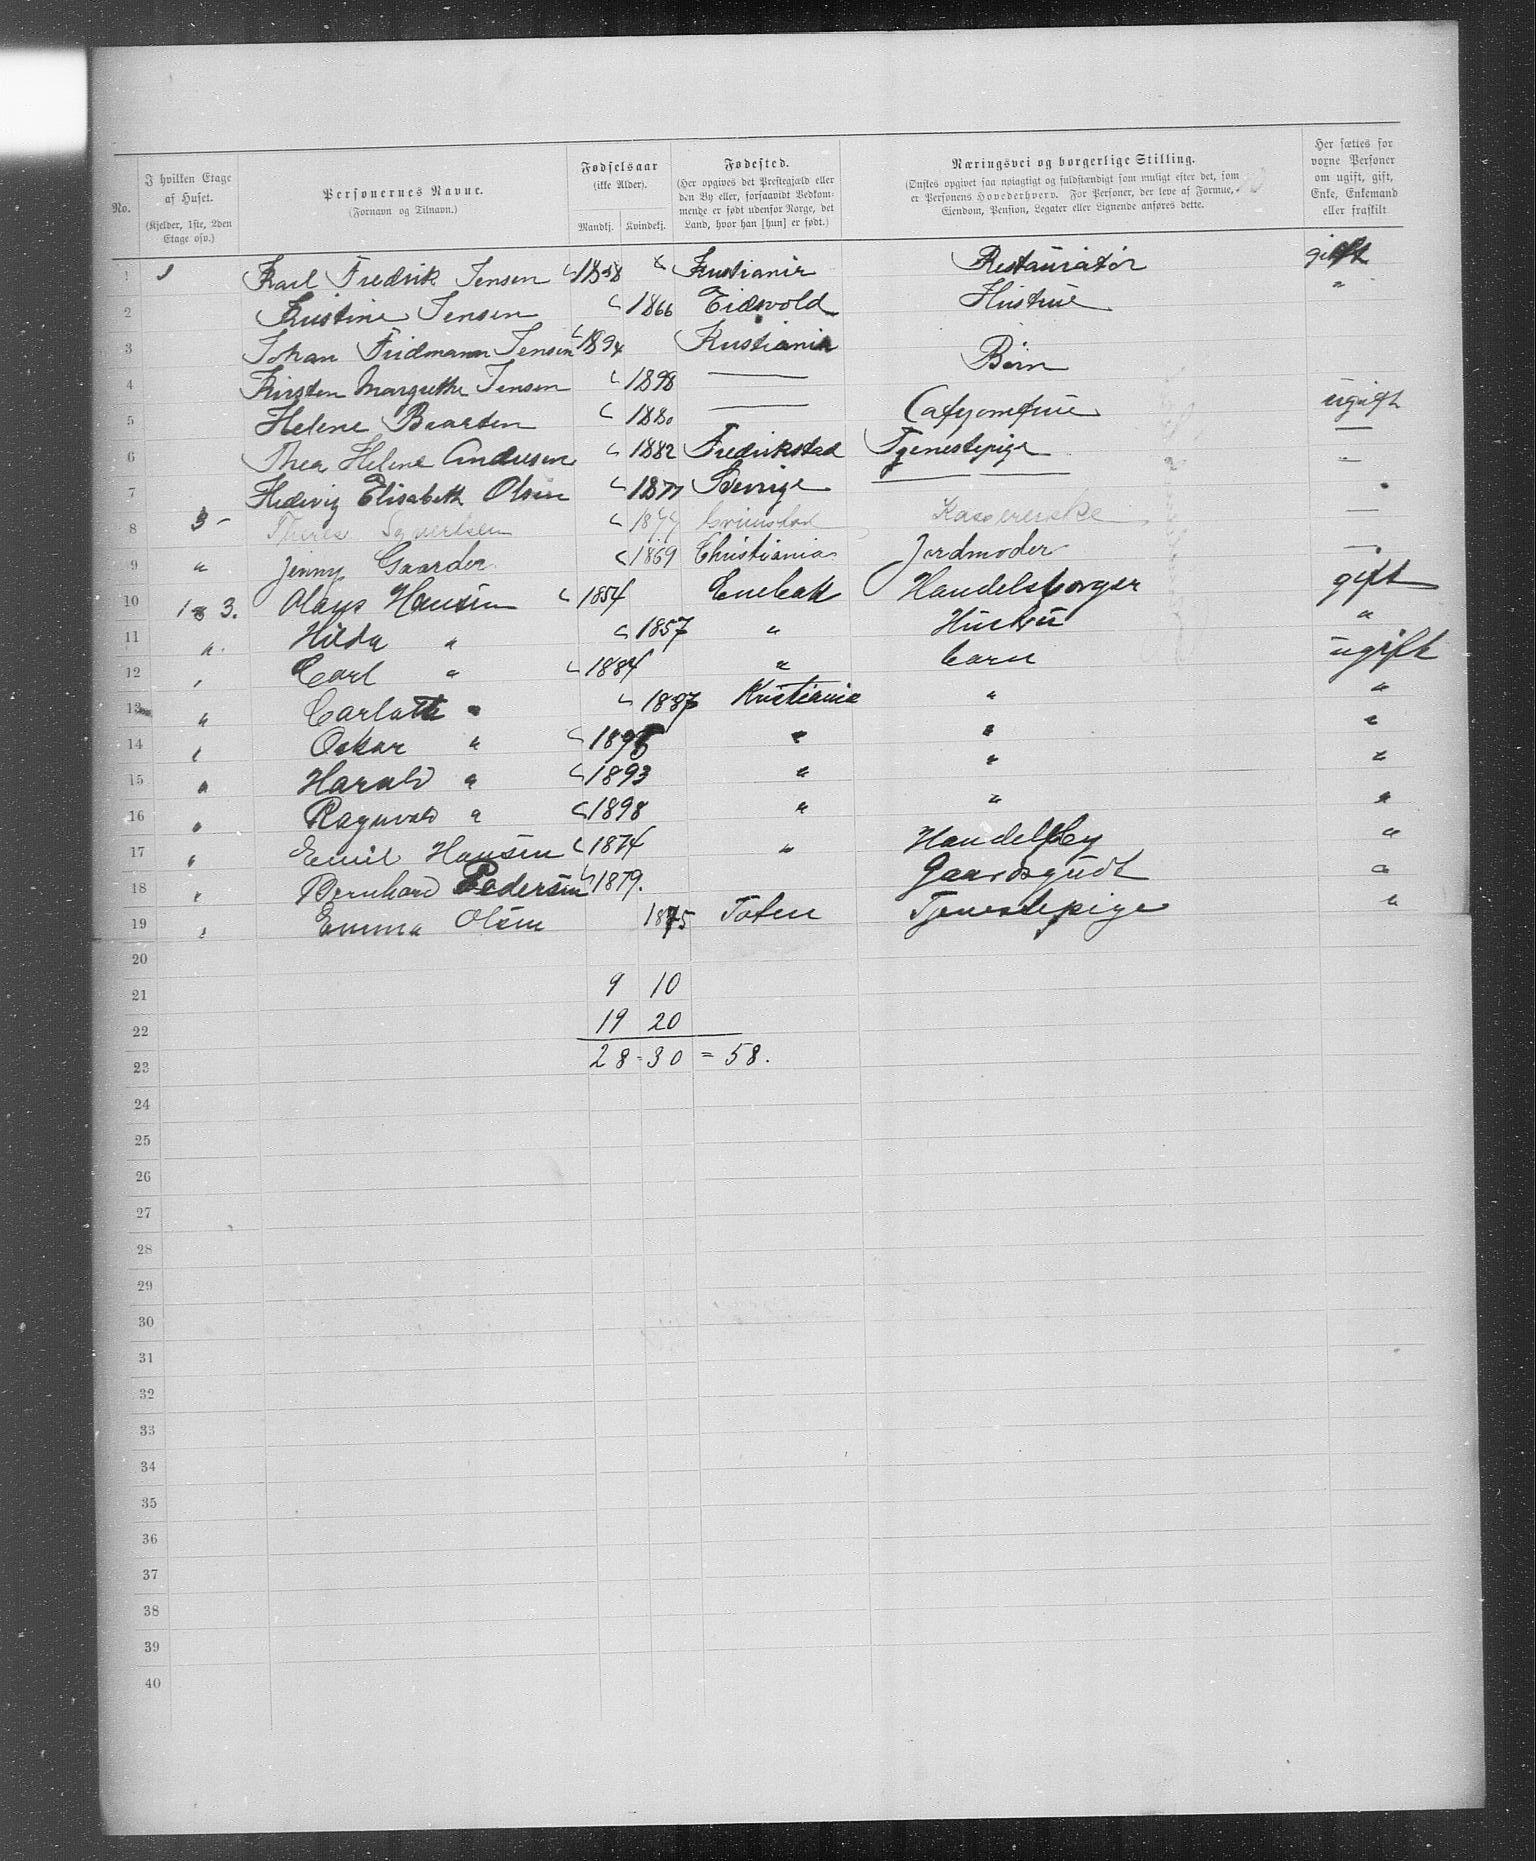 No. I hvilken Etage af Huset. (Kjelder, 1ste, 2den Etage osv.) Personernes Navne. (Fornavn og Tilnavn.) Fødselsaar (ikke Alder). Mandkj. Kvindekj. Fødested. (Her opgives det Prestegjæld eller den By eller, forsaavidt Vedkommende er født udenfor Norge, det Land, hvor han [hun] er født.) Næringsvei og borgerlige Stilling. (Ønskes opgivet saa nøiagtigt og fuldstændigt som muligt efter det, som er Personens Hovederhverv. For Personer, der leve af Formue, Eiendom, Pension, Legater eller Lignende anføres dette. Her sættes for voxne Personer om ugift, gift, Enke, Enkemand eller fraskilt
1 1 Karl Fredrik Jensen 1858 Kristiania Restauratør gift
2 Kristine Jensen 1866 Eidsvold Hustrue "
3 Johan Fridmann Jensen 1894 Kristiania
4 Kirsten Margrethe Jensen 1898 — Børn
5 Helene Baarsen 1880 — Cafejomfrue ugift
6 Thea Helene Andersen 1882 Fredrikstad Tjenestepige —
7 Hedevig Elisabeth Olsen 1877 Sverige — "
8 3 - Syvertsen Grimstad Kassererske —
9 " Jenny Gaarder 1869 Christiania Jordmoder —
10 1 3. Olaus Hansen 1854 Enebak Handelsborger gift
11 " Hilda " 1857 " Hustru "
12 " Carl " 1884 " barn ugift
13 " Carlotte " 1887 Kristiania " "
14 " Oskar " " " "
15 " Harald " 1893 " " "
16 " Ragnvald " 1898 " " "
17 " Emil Hansen 1874 " "
18 " Bernhard Pedersen 1879. Gaardsgudt "
19 " Emma Olsen 1875 Toten Tjenestepige "
20
21 9 10
22 19 20
23 28 - 30 = 58.
24
25
26
27
28
29
30
31
32
33
34
35
36
37
38
39
40